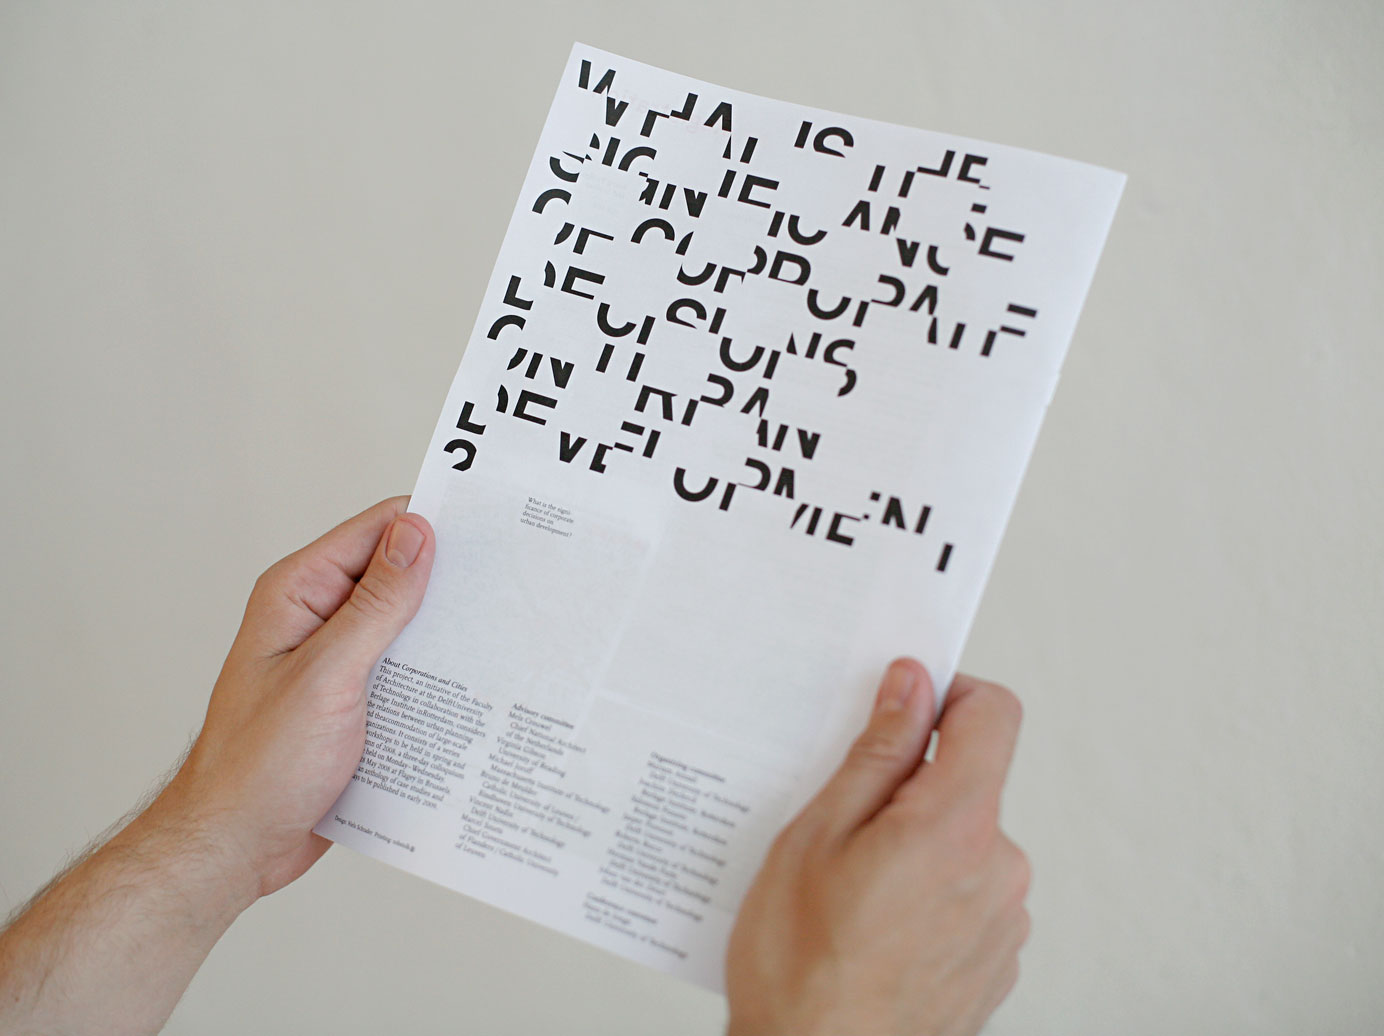 WHAT IS THE
SIGNIFICANCE
OF CORPORATE
DECISIONS
ON URBAN
DEVELOPMENT
What is the signi-
ficance of corporate
decisions on
urban development?
About Corporations and Cities
This project, an initiative of the Faculty
of Architecture at the DelftUniversity
of Technology in collaboration with the
Berlage Institute inRotterdam, considers
the relations between urban planning
and theaccommodation of large-scale
organizations. It consists of a series
workshops to be held in spring and
of 2008, a three-day colloquium
held on Monday–Wednesday,
28 May 2008 at Flagey in Brussels,
an anthology of case studies and
to be published in early 2009.
Design: Niels Schrader Printing:
Advisory committee
Mels Crouwel
Chief National Architect
of the Netherlands
Virginia Gibson
University of Reading
Michael Joroff
Massachusetts Institute of Technology
Bruno de Meulder
Catholic University of Leuven /
Eindhoven University of Technology
Vincent Nadin
Delft University of Technology
Marcel Smets
Chief Government Architect
of Flanders / Catholic University
of Leuven
Organizing committee
Delft University of Technology
Berlage Institute, Rotterdam
Berlage Institute, Rotterdam
Delft University of Technology
Delft University of Technology
Delft University of Technology
Delft University of Technology
Conference
Delft University of Technology